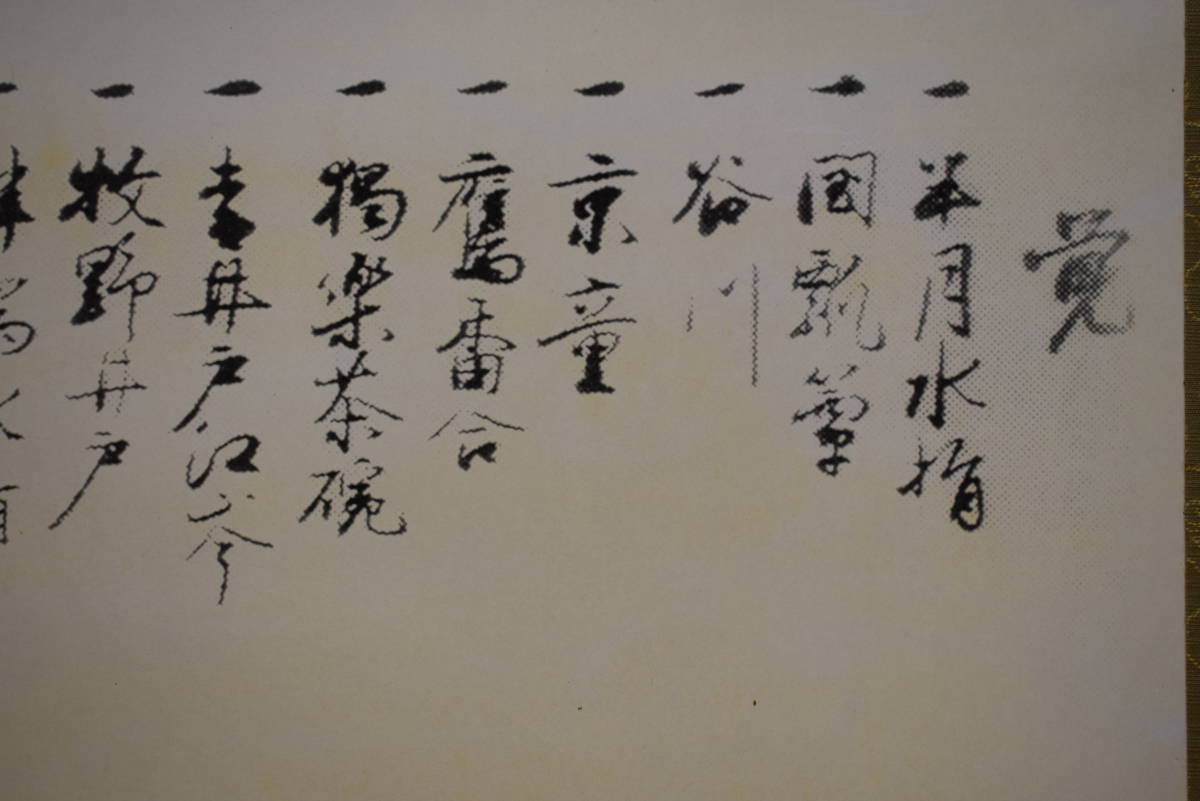 覚
一 半月水指
一 国瓢箪
一 谷川
一 京童
一 鷹香合
一 獨楽茶碗
一 青井戸 江岑
一 牧野井戸
一